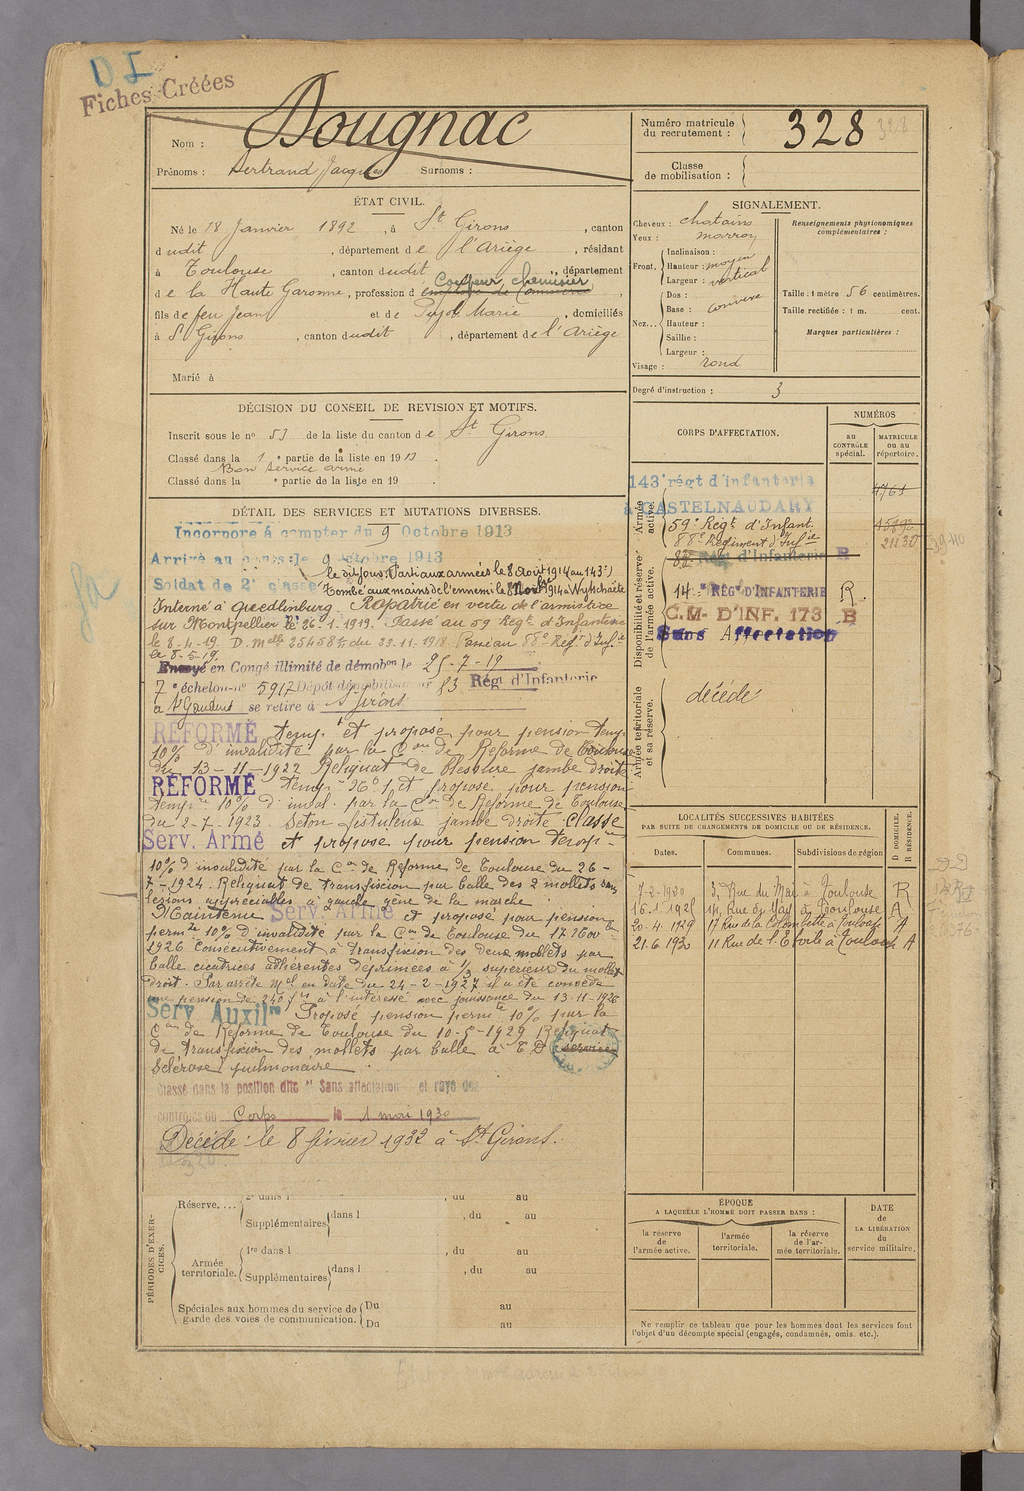 D I
Fiches Créées
Nom : Dougnac
Prénoms : Bertrand Jacques Surnoms :
Numéro matricule du recrutement : 328
Classe de mobilisation :
ÉTAT CIVIL.
Né le 18 Janvier 1892, à St Girons, canton
dudit, département de l'Ariège, résidant
à Toulouse, canton dudit, département
Coiffeur chemisier
de la Haute Garonne, profession d employé de Commerce,
fils de feu Jean et de Pujol Marie, domiciliés
à St Girons, canton dudit, département de l'Ariège
Marié à
SIGNALEMENT.
Cheveux : chatains
Yeux : marron
Front. Inclinaison :
Hauteur : moyen
Largeur : vertical
Nez... Dos :
Base : convexe
Hauteur :
Saillie :
Largeur :
Visage : rond
Renseignements physionomiques complémentaires :
Taille : 1 mètre 56 centimètres.
Taille rectifiée : 1 m. cent.
Marques particulières :
Degré d'instruction : 3
DÉCISION DU CONSEIL DE REVISION ET MOTIFS.
Inscrit sous le no 53 de la liste du canton de St Girons
Classé dans la 1e partie de la liste en 1913.
Bon service armé
Classé dans la e partie de la liste en 19 .
DÉTAIL DES SERVICES ET MUTATIONS DIVERSES.
Incorporé à compter du 9 Octobre 1913
Arrivé au corps le 9 octobre 1913
Soldat de 2e classe
le dit jour. Parti aux armées le 8 Août 1914 (au 143e)
Tombé aux mains de l'ennemi le 8 Novbre 1914 à Wytschaëte
Interné à Quedlinburg. Rapatrié en vertu de l'armistice
sur Montpellier le 26-1-1919. Passé au 59 Régt d'Infanterie
le 8-4-19. D. Melle 25458 du 23-11-1918. Passé au 88e Régt d'Infie
le 8-5-19.
Envoyé en Congé illimité de démobon le 25-7-19
7e échelon no 5917 Dépôt démobilisateur 83 Régt d'Infanterie
à St Gaudens se retire à St Girons
RÉFORMÉ tempre et proposé pour pension temp.
10% d'invalidité par la Con de Réforme de Toulouse
du 13-11-1922 Reliquat de blessure jambe droite
RÉFORMÉ et proposé pour pension
tempre 10% d'inval. par la Con de Réforme de Toulouse
du 2-7-1923. Séton fistuleux jambe droite. Classé
Serv. Armé et proposé pour pension tempre
10% d'invalidité par la Con de Réforme de Toulouse du 26-
7-1924. Reliquat de transfixion par balle des 2 mollets sans
lésions appréciables à gauche gêne de la marche
Maintenu Serv. Armé et proposé pour pension
permte 10% d'invalidité par la Con de Toulouse du 17 Nov
1926 consécutivement à transfixion des deux mollets par
balle cicatrices adhérentes déprimées à 1/3 supérieur du mollet
droit. Par arrêté Mel en date du 24-2-1927 il a été concédé
une pension de 240 frs à l'intéressé avec jouissance du 13-11-1926
Serv. Auxilre Proposé pension permte 10% par la
Con de Réforme de Toulouse du 10-5-1929 Reliquat
de transfixion des mollets par balle à T D service
Sclérose pulmonaire.
Classé dans la position dite "Sans affectation" et rayé des
contrôles du Corps le 1 mai 1930
Décédé : le 8 février 1932 à St Girons.
CORPS D'AFFECTATION.
NUMÉROS
AU CONTRÔLE spécial.
MATRICULE ou au répertoire.
Armée active.
143e régt d'infanterie
à CASTELNAUDARY
4761
59e Régt d'Infant.
88e Régiment d'Infie
21130
Disponibilité et réserve de l'armée active.
Régt d'Infanterie R
14e RÉGt D'INFANTERIE R.
C.M. D'INF. 173 B
Sans Affectation
Armée territoriale et sa réserve.
décédé
LOCALITÉS SUCCESSIVES HABITÉES
PAR SUITE DE CHANGEMENTS DE DOMICILE OU DE RÉSIDENCE.
Dates. Communes. Subdivisions de région
D DOMICILE.
R RÉSIDENCE.
7-2-1920 3, Rue du Mai à Toulouse R
16-1-1925 Toulouse A
20-4-1929 17 Rue de la Colombette à Toulouse A
21.6 1930 11 Rue de l'Etoile à Toulouse A
PÉRIODES D'EXERCICES.
Réserve.... 2e dans l , du au
Supplémentaires dans l , du au
Armée territoriale. 1re dans l , du au
Supplémentaires dans l , du au
Spéciales aux hommes du service de garde des voies de communication. Du au
Du au
ÉPOQUE
A LAQUELLE L'HOMME DOIT PASSER DANS :
la réserve de l'armée active.
l'armée territoriale.
la réserve de l'armée territoriale.
DATE de LA LIBÉRATION du service militaire.
Ne remplir ce tableau que pour les hommes dont les services font
l'objet d'un décompte spécial (engagés, condamnés, omis, etc.).